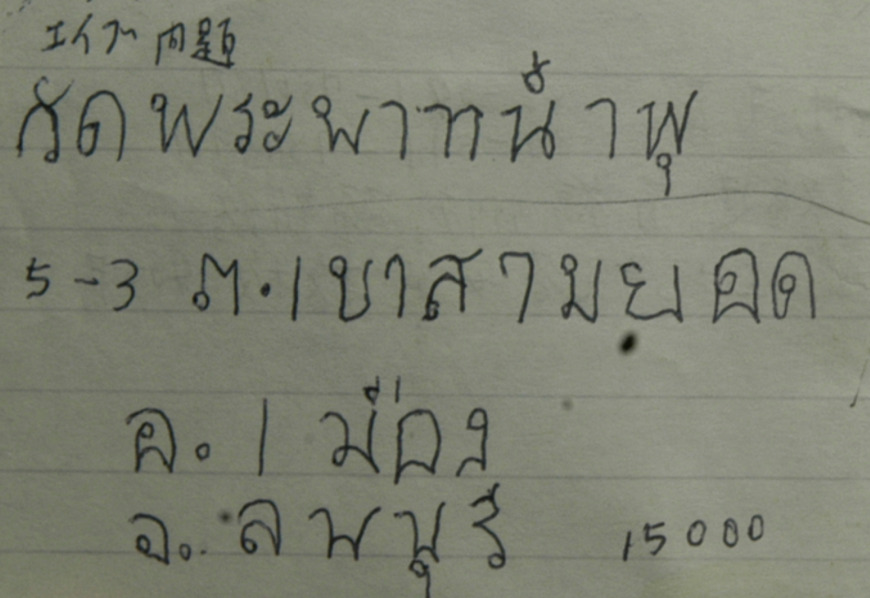 エイズ問題
วัดพระพาทน้ำพุ
5-3 ต.เขาสามยอด
อ.เมือง
จ.ลพบุรี 15000